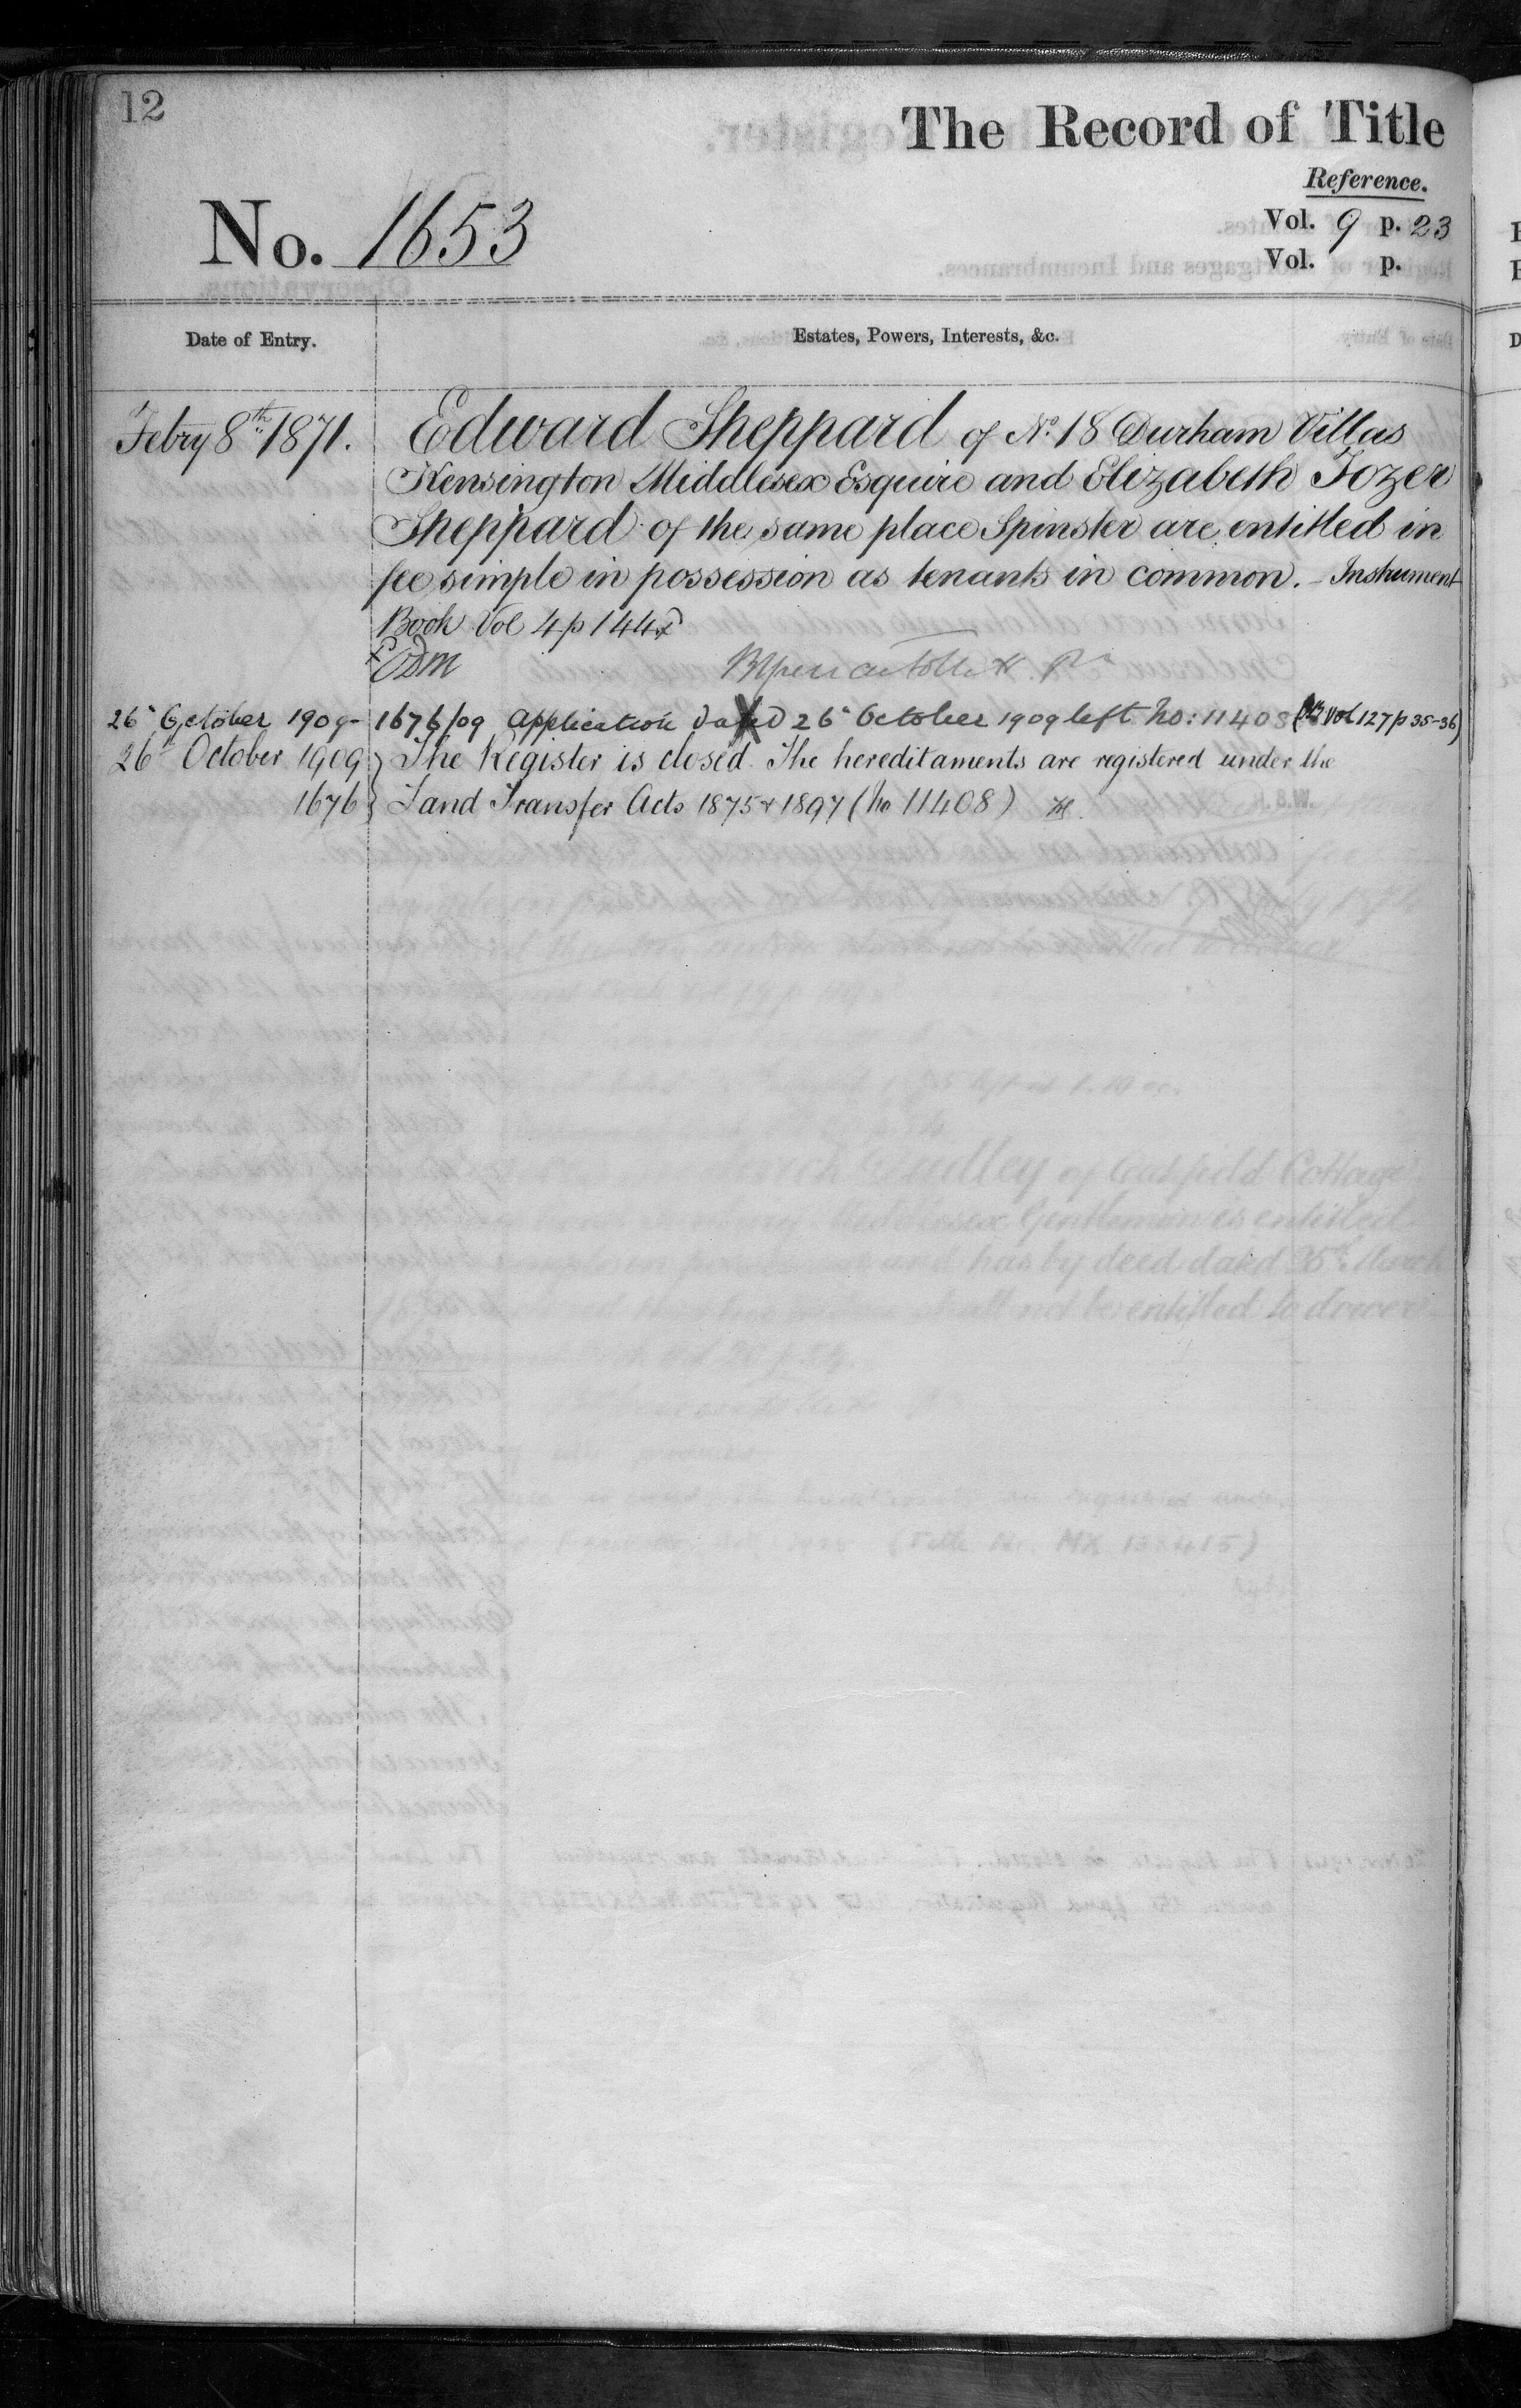 12
The Record of Title
Reference.
No. 1653
Vol. 9 p. 23
Vol. p.
Date of Entry.
Estates, Powers, Interests, &c.
Febry 8th 1871.
Edward Sheppard of No. 18 Durham Villas
Kensington Middlesex Esquire and Elizabeth Tozer
Sheppard of the same place Spinster are entitled in
fee simple in possession as tenants in common. – Instrument
Book Vol 4 p 144
26" October 1909 - 1676/09 Application dated 26" October 1909 left No: 11408 (Vol 127 p 35-36)
26th October 1909 } The Register is closed. The hereditaments are registered under the
1676 } Land Transfer Acts 1875 & 1897 (No 11408)